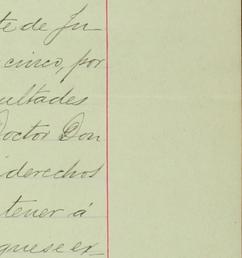 te de Ju-
cinco, por
cultades
Doctor Don
derechos
tener á
quese ex-